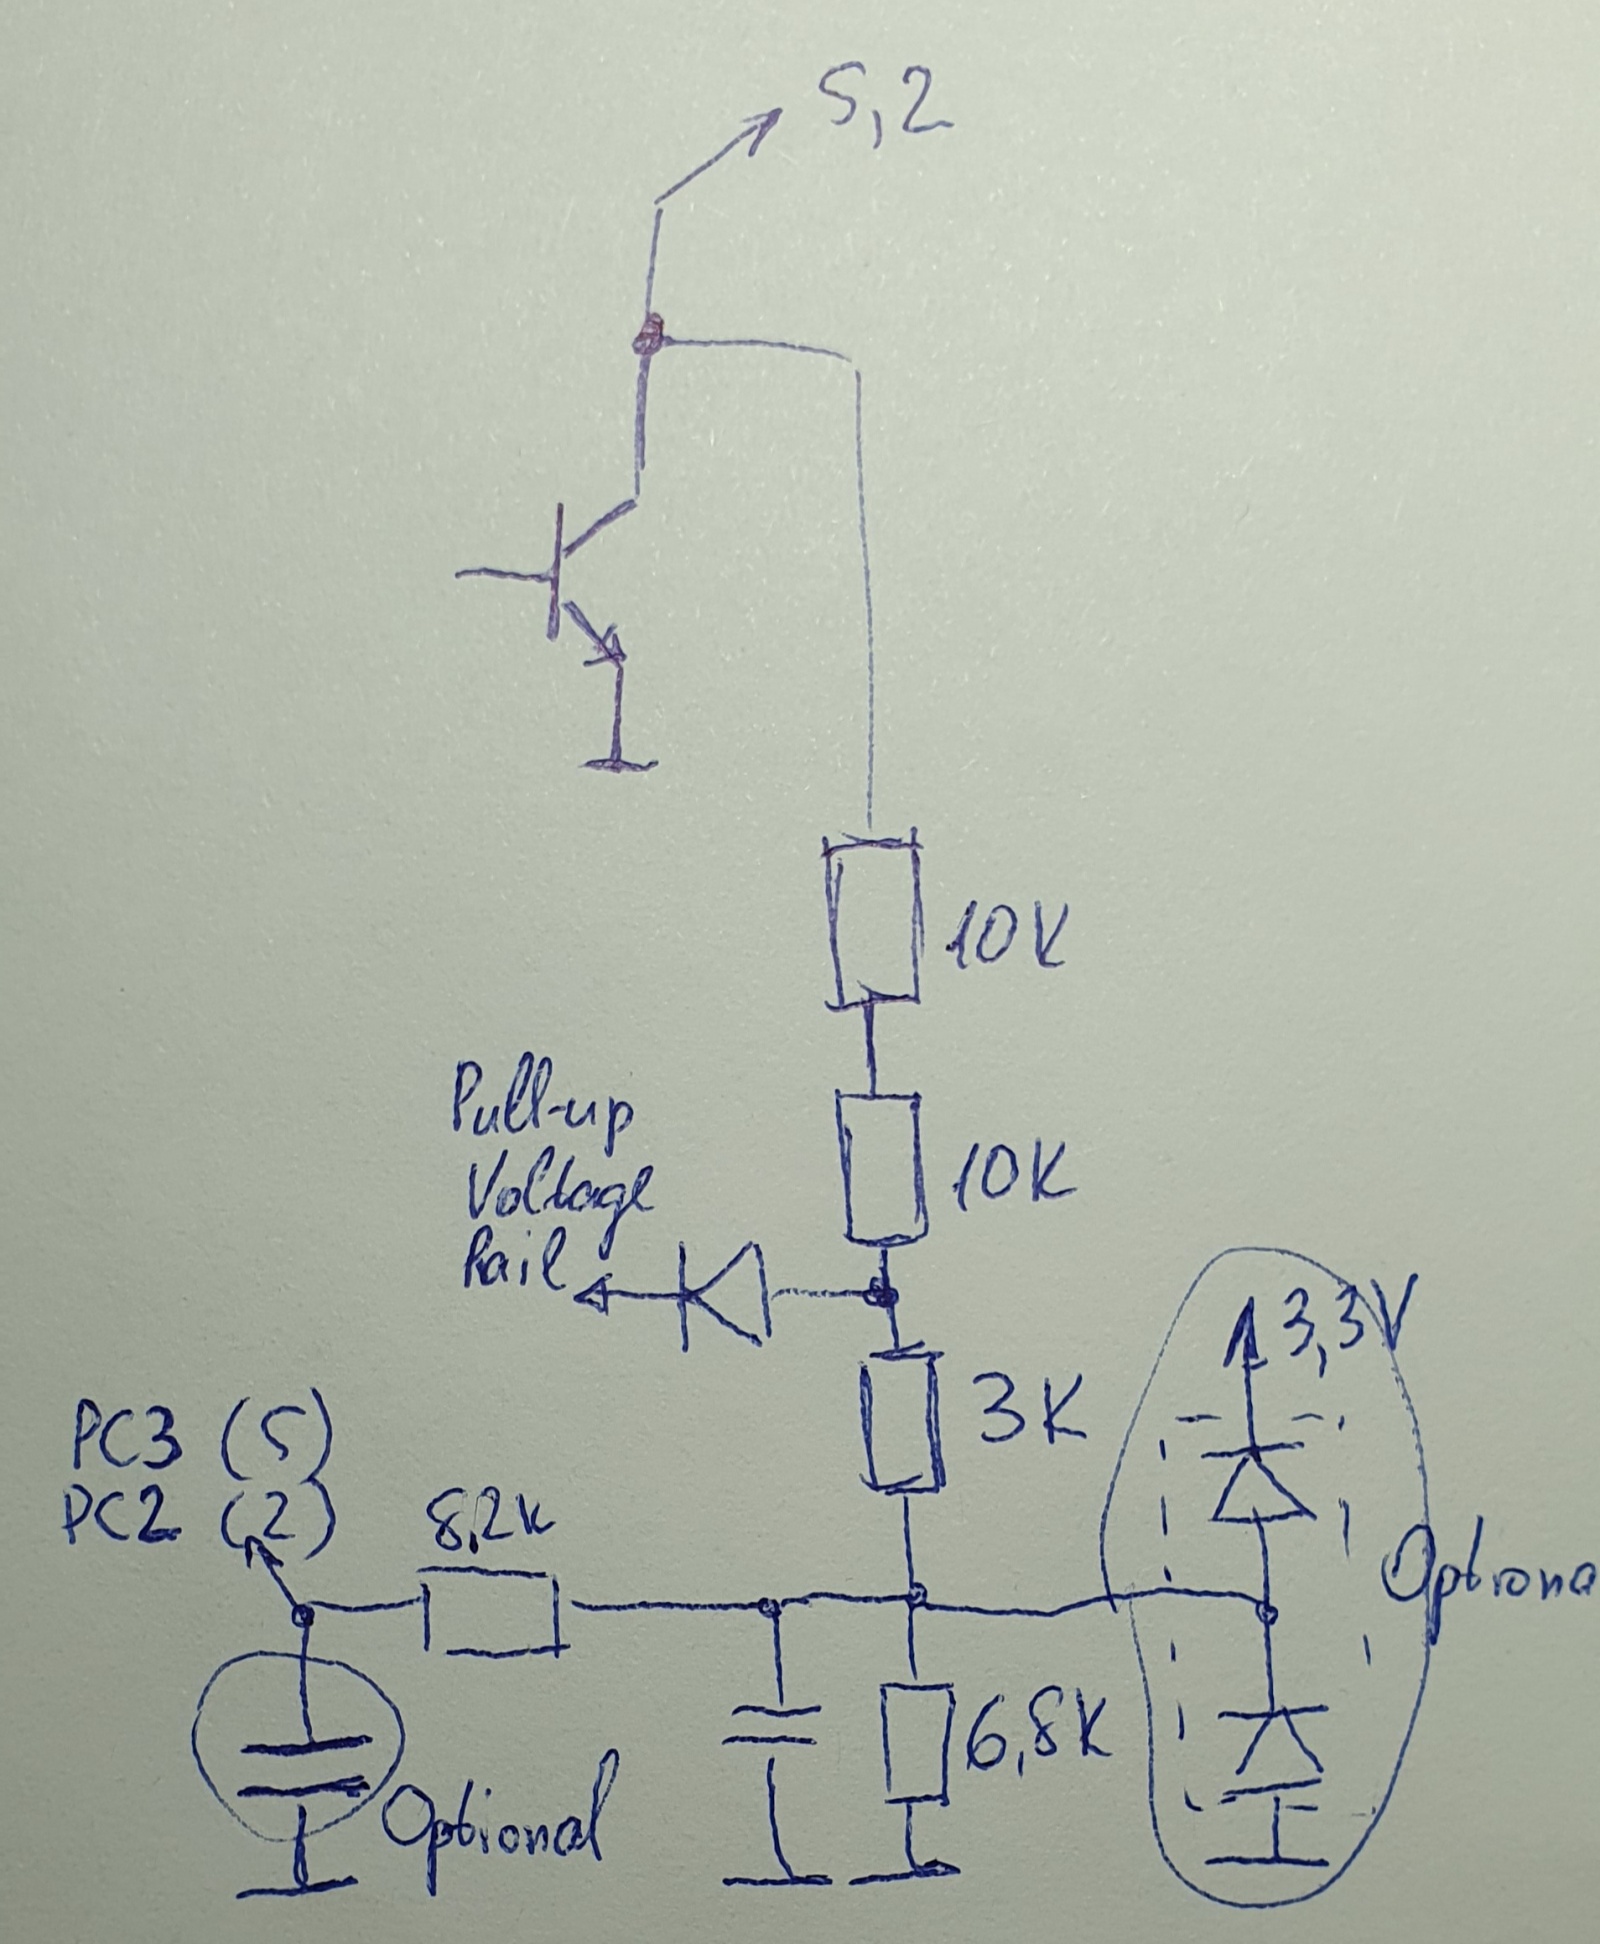 5,2
10K
Pull-up
Voltage
Rail
10K
3,3V
3K
PC3 (5)
PC2 (2)
8,2K
Optiona
6,8K
Optional